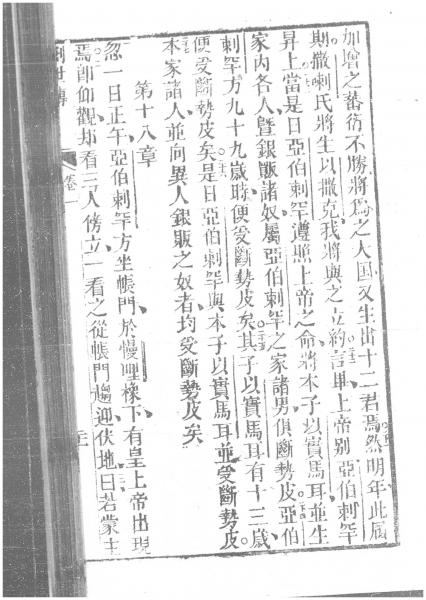 加增之蕃衍不勝將爲之大国又生出十二君焉然明年此屆
期撒喇氏將生以撒克我將與之立約言畢上帝别亞伯剌罕
昇上當是日亞伯剌罕遵照上帝之命將本子以實馬耳並生
家内各人曁銀販諸奴屬亞伯剌罕之家諸男俱斷勢皮亞伯
剌罕方九十九歲時便受斷勢皮矣其子以實馬耳有十三歲
便受斷勢皮矣是日亞伯剌罕與本子以實馬耳並受斷勢皮
本家諸人並向異人銀販之奴者均受斷勢皮矣
第十八章
忽一日正午亞伯剌罕方坐帳門於慢哩橡下有皇上帝出現
焉卽仰觀却看三人傍立一看之從帳門趨迎伏地曰若蒙主
創世傳
卷一